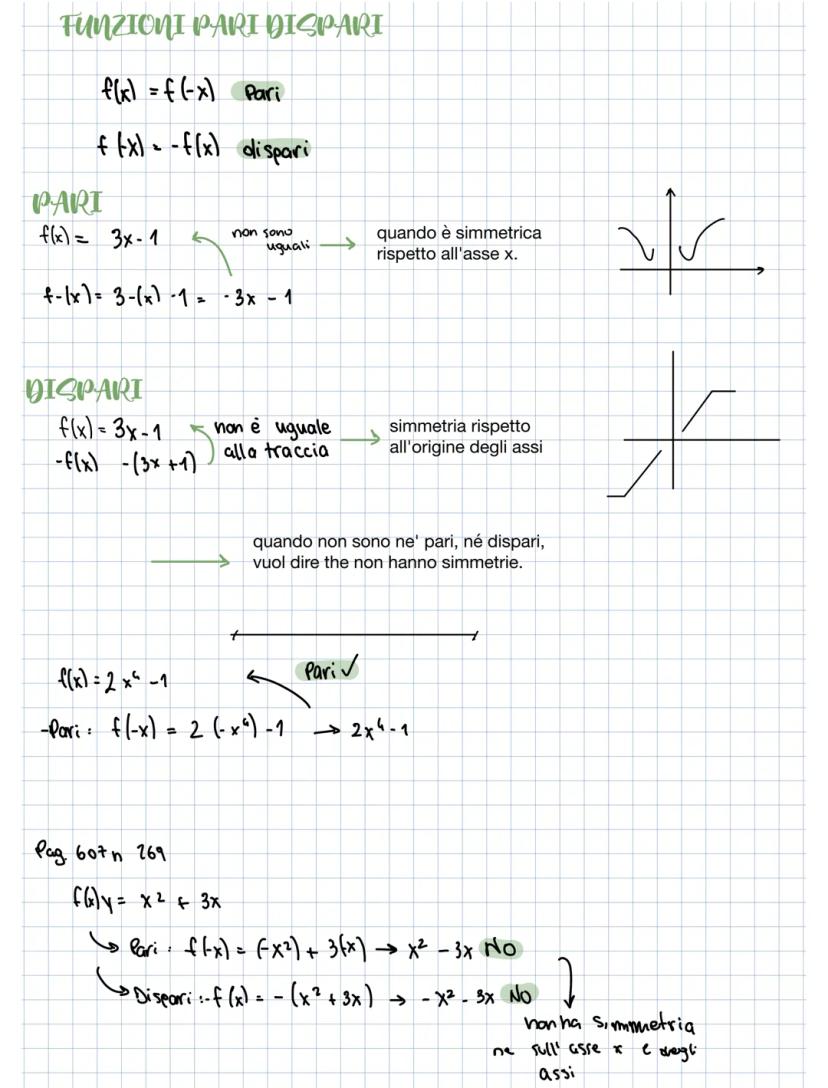 FUNZIONI PARI DISPARI
f(x) = f(-x) Pari
f(-x) = -f(x) dispari
PARI
f(x) = 3x - 1
non sono
uguali
quando è simmetrica
rispetto all'asse x.
f-(x) = 3-(x) -1 = -3x - 1
DISPARI
f(x) = 3x - 1
-f(x) -(3x +1)
non è uguale
alla traccia
simmetria rispetto
all'origine degli assi
quando non sono ne' pari, né dispari,
vuol dire the non hanno simmetrie.
Pari ✓
f(x) = 2x⁴ -1
-Pari: f(-x) = 2(-x⁴) -1 → 2x⁴ -1
Pag 607 n 269
f(x)y = x² + 3x
Pari: f(-x) = (-x²) + 3(-x) → x² - 3x NO
Dispari: -f(x) = -(x² + 3x) → -x² - 3x NO
non ha simmmetria
ne sull' asse x e degli
assi